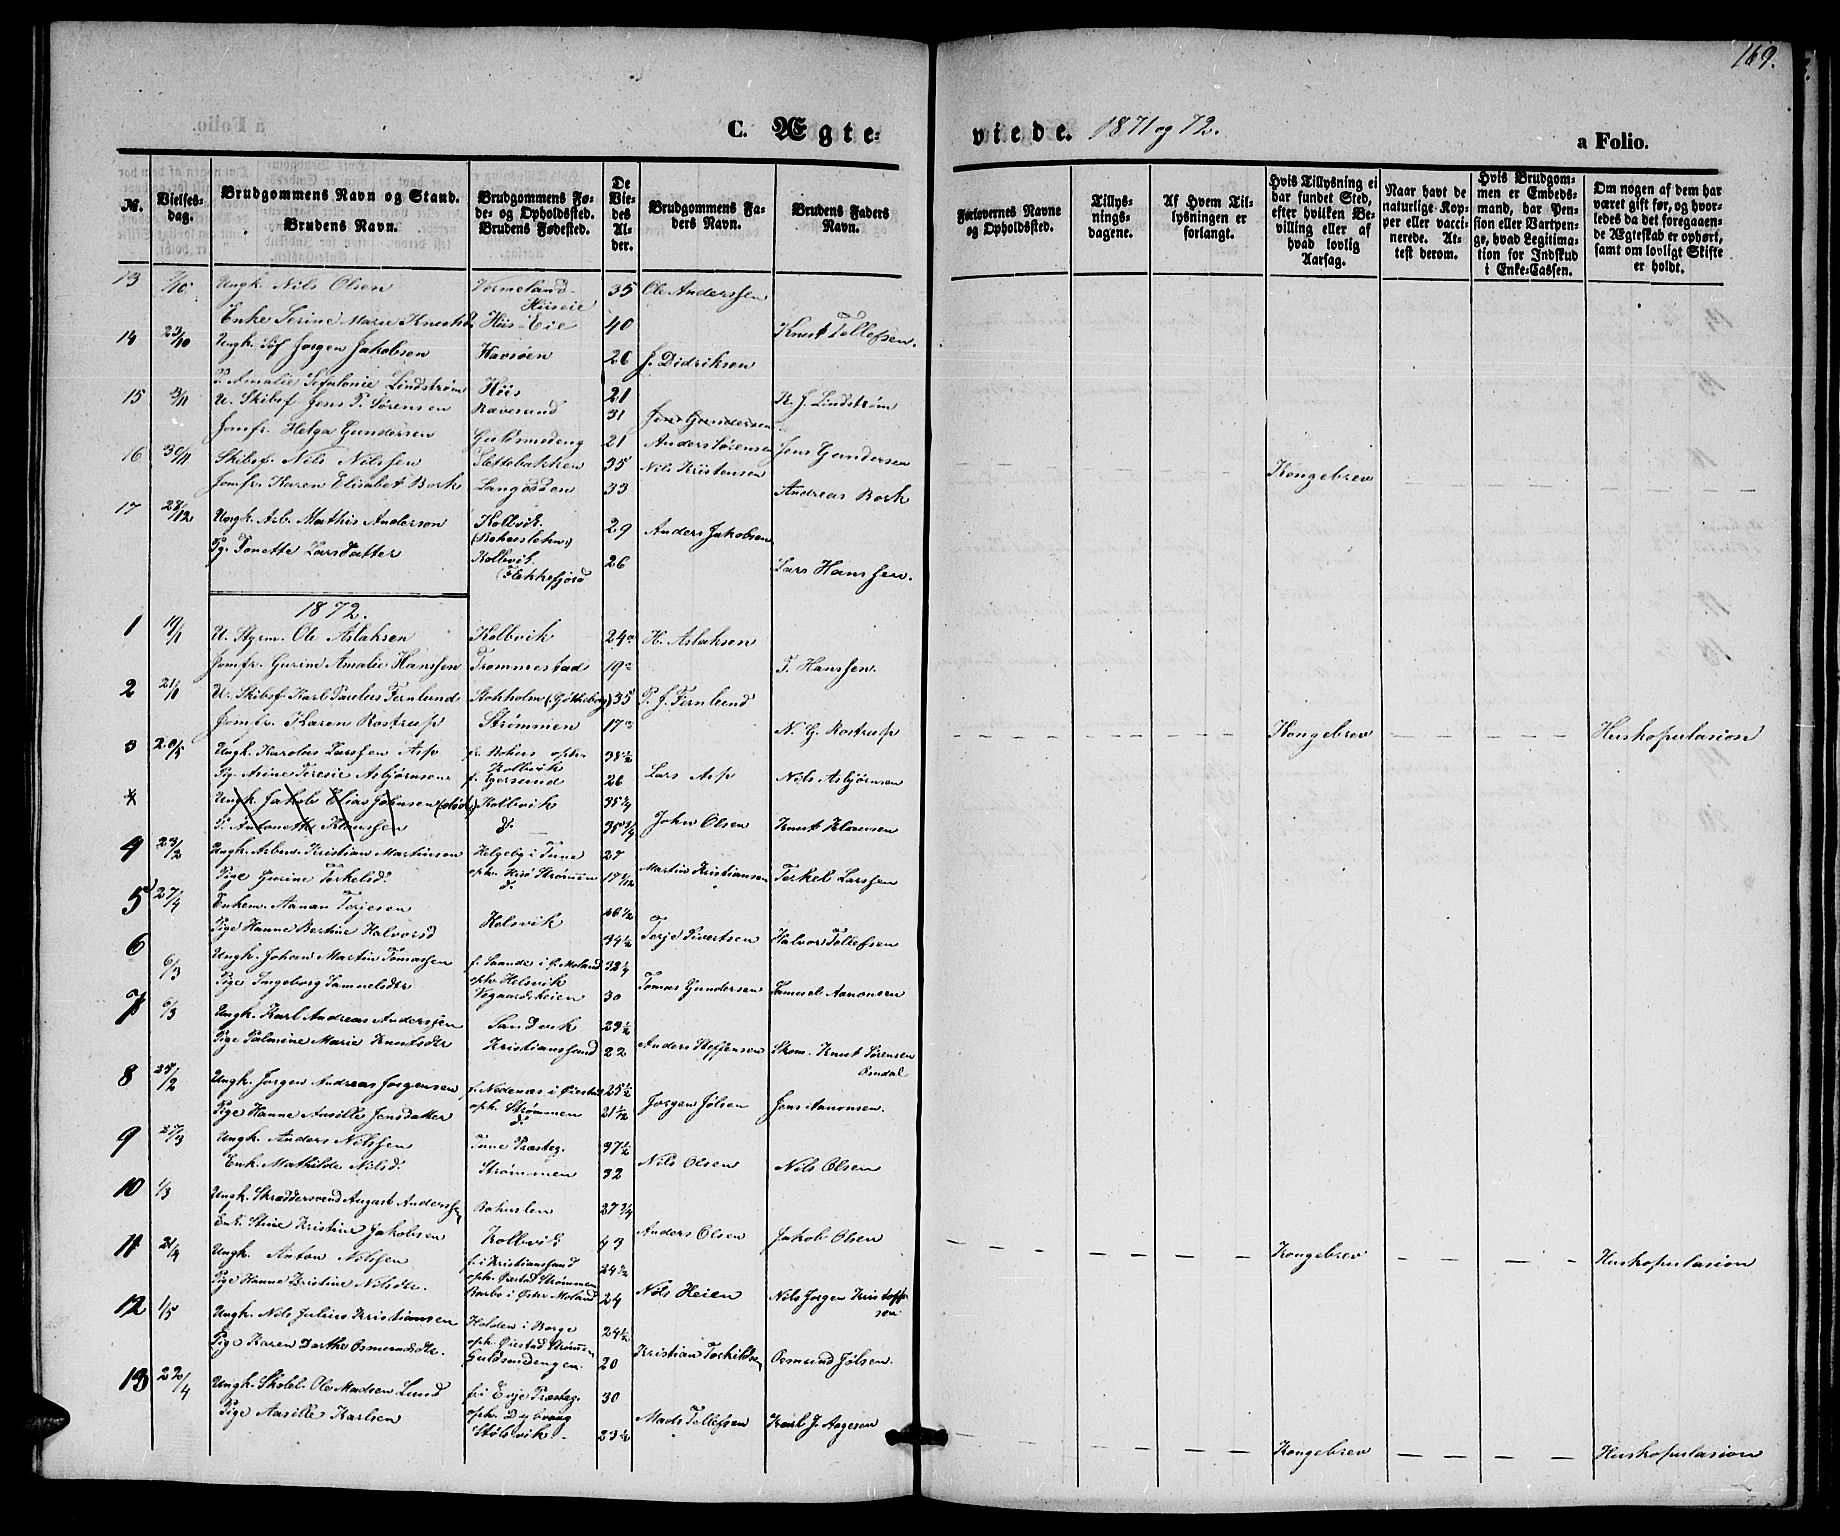 169.
C. Ægte-
viede. 1871 og 72.
a Folio.
№.
Vielses-dag.
Brudgommens Navn og Stand.
Brudens Navn.
Brudgommens Fø-de- og Opholdssted.
Brudens Fødested.
De Vie-des Al-der.
Brudgommens Fa-ders Navn.
Brudens Faders Navn.
Forlovernes Navne og Opholdssted.
Tillys-nings-dagene.
Af Hvem Til-lysningen er forlangt.
Hvis Tillysning ei har fundet Sted, efter hvilken Be-villing eller af hvad lovlig Aarsag.
Naar havt de naturlige Kop-per eller vacci-nerede. At-test derom.
Hvis Brudgom-men er Embeds-mand, har Pen-sion eller Vartpen-ge, hvad Legitima-tion for Indskud i Enke-Cassen.
Om nogen af dem har været gift før, og hvor-ledes da det foregaaen-de Ægteskab er ophørt, samt om lovligt Skifte er holdt.
13 Ungk. Nils Olsen Vermeland 35 Ole Anderssen
Hiiseie
Enke Serine Marie Hiis Eie 40 Knut Tellefsen.
14 23/10 Ungk. Søf Jørgen Jakobsen Havsøen 26 J. Didriksen
P. Amalie Sefalonie Lindstrøm Hiis 21 K. J. Lindstrøm
15 3/11 U. Skibsf. Jens P. Sørensen Ravesand 31 Jens Gundersen
Jomfr. Helga Gundersen Guldsmedeng 21 Anders Sørensen Jens Gundersen
16 30/11 Skibsf. Nils Nilssen Slettebakken 35 Nils Kristensen
Jomfr. Karen Elisabet Bork Langodden 33 Andreas Bork Kongebrev
17 28/12 Ungk. Arb. Mathis Anderson Kolbvik 29 Anders Jakobsen
(Bohuslehn)
Pg. Tonette Larsdatter Kolbvik 26 Lars Hanssen.
(Flekkefjord
1872.
1 19/1 U. Styrm. Ole Aslaksen Kolbvik 24 H. Aslaksen
Jomfr. Gurine Amalie Hanssen Trommestad 19 T. Hanssen.
2 21/1 U. Skibsf. Karl Paulus Fernlund Stokholm (Gøtheborg) 35 P. J. Fernlund
Jomfr. Karen Rostrup Strømmen 17 N. G. Rostrup Kongebrev Huskopulasion
3 Ungk. Karolus Larssen Asp fr. Bohus oph. 38 1/2 Lars Asp
Kolbvik
Pg. Anine Teresie Asbjørnsen f. Egersund 26 Nils Asbjørnsen
Ungk. Jakob Elias Johnsen (død) Kolbvik 35 John Olsen
P. Antonette Klaussen d. 35 3/4 Knut
4 23/2 Ungk. Arbm. Kristian Martinsen Helgeby i Tune 27 Martin Kristiansen
Pige Gurine Terkelsd. oph. Hisø Strømmen 17 Terkel Larssen
5 27/4 Enkem. Aanon Terjesen Helsvik 46 1/2 Terje Sivertsen
Pige Hanne Bertine Halvorsd 34 1/2 Halvor Tellefsen
6 6/3 Ungk. Johan Martin Tomassen f. Saande i Ø. Moland 32 1/4 Tomas Gundersen
oph. Helsvik
Pige Ingeborg Samuelsdtr Vegaardsheien 30 Samuel Aanonsen
7 6/3 Ungk. Karl Andreas Anderssen Sandvik 23 1/2 Anders Steffensen
Pige Palmine Marie Knutsdtr Kristianssand 22 Skom. Knut Sørensen
Omdal
8 25/2 Ungk. Jørgen Andreas Jørgensen f. Nedenæs i Øiestad 25 1/2 Jørgen Jølsen
Pige Hanne Aasille Jensdatter oph. Strømmen 21 Jens Aanonsen.
9 27/3 Ungk. Anders Nilssen Tune Præsteg. 37 1/2 Nils Olsen
Enk. Mathilde Nilsd. Strømmen 32 Nils Olsen
10 1/3 Ungk. Skræddersvend August Anderssen Bohuslen 27 Anders Olsen
Enk. Stine Kristine Jakobsen Kolbvik 43 Jakob Olsen
11 21/4 Ungk. Anton Nilssen f. i Kristianssand 24 1/2 Nils Heien Kongebrev Huskopulasion
oph. Øiestad Strømmen
Pige Hanne Kristine Nilsdtr. Barbo i Øster Moland 24 Nils Jørgen Kristoffer-
sen
12 1/5 Ungk. Nils Julius Kristiansen Holden i Borge 24 1/2 Kristian Torkildsen
oph. Øiestad Strømmen
Pige Karen Dorthe Osmundsdtr. Guldsmedengen. 20 Osmund Jølsen.
13 22/4 Ungk. Skolel. Ole Madsen Lund f. i Evje Præsteg. 30 Mads Tellefsen
oph. Dybvaag
Pige Aasille Karlsen Stølsvik 23 1/2 Karl J. Aagesen
Kongebrev Huskopulasion